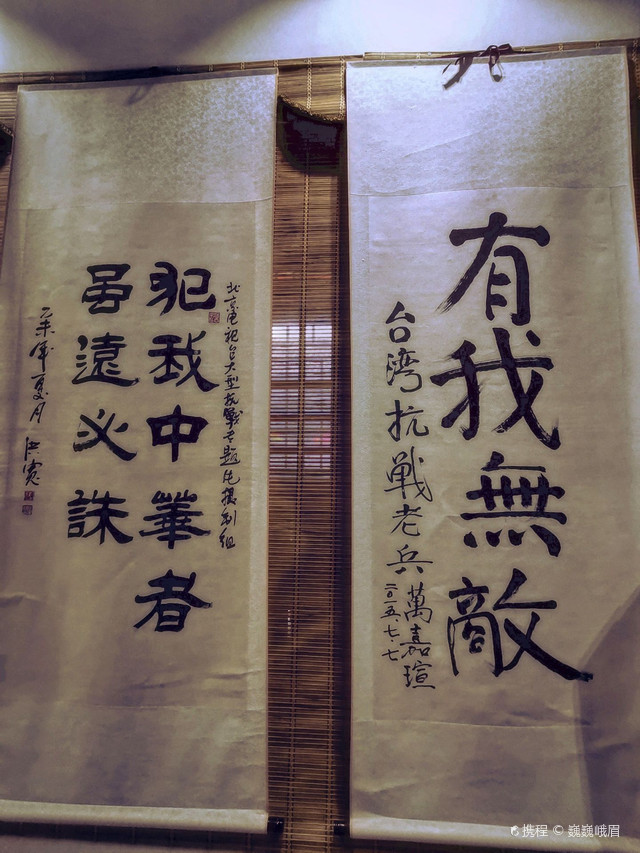 有我無敵
台湾抗戰老兵 萬嘉瑄
二〇一五.七.七
北京电視台大型抗戰专題片摄制组
犯我中華者
虽遠必誅
乙未年夏月
携程 © 巍巍峨眉